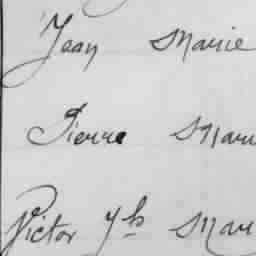 Jean Marie
Pierre Mari
Victor Yh Mari